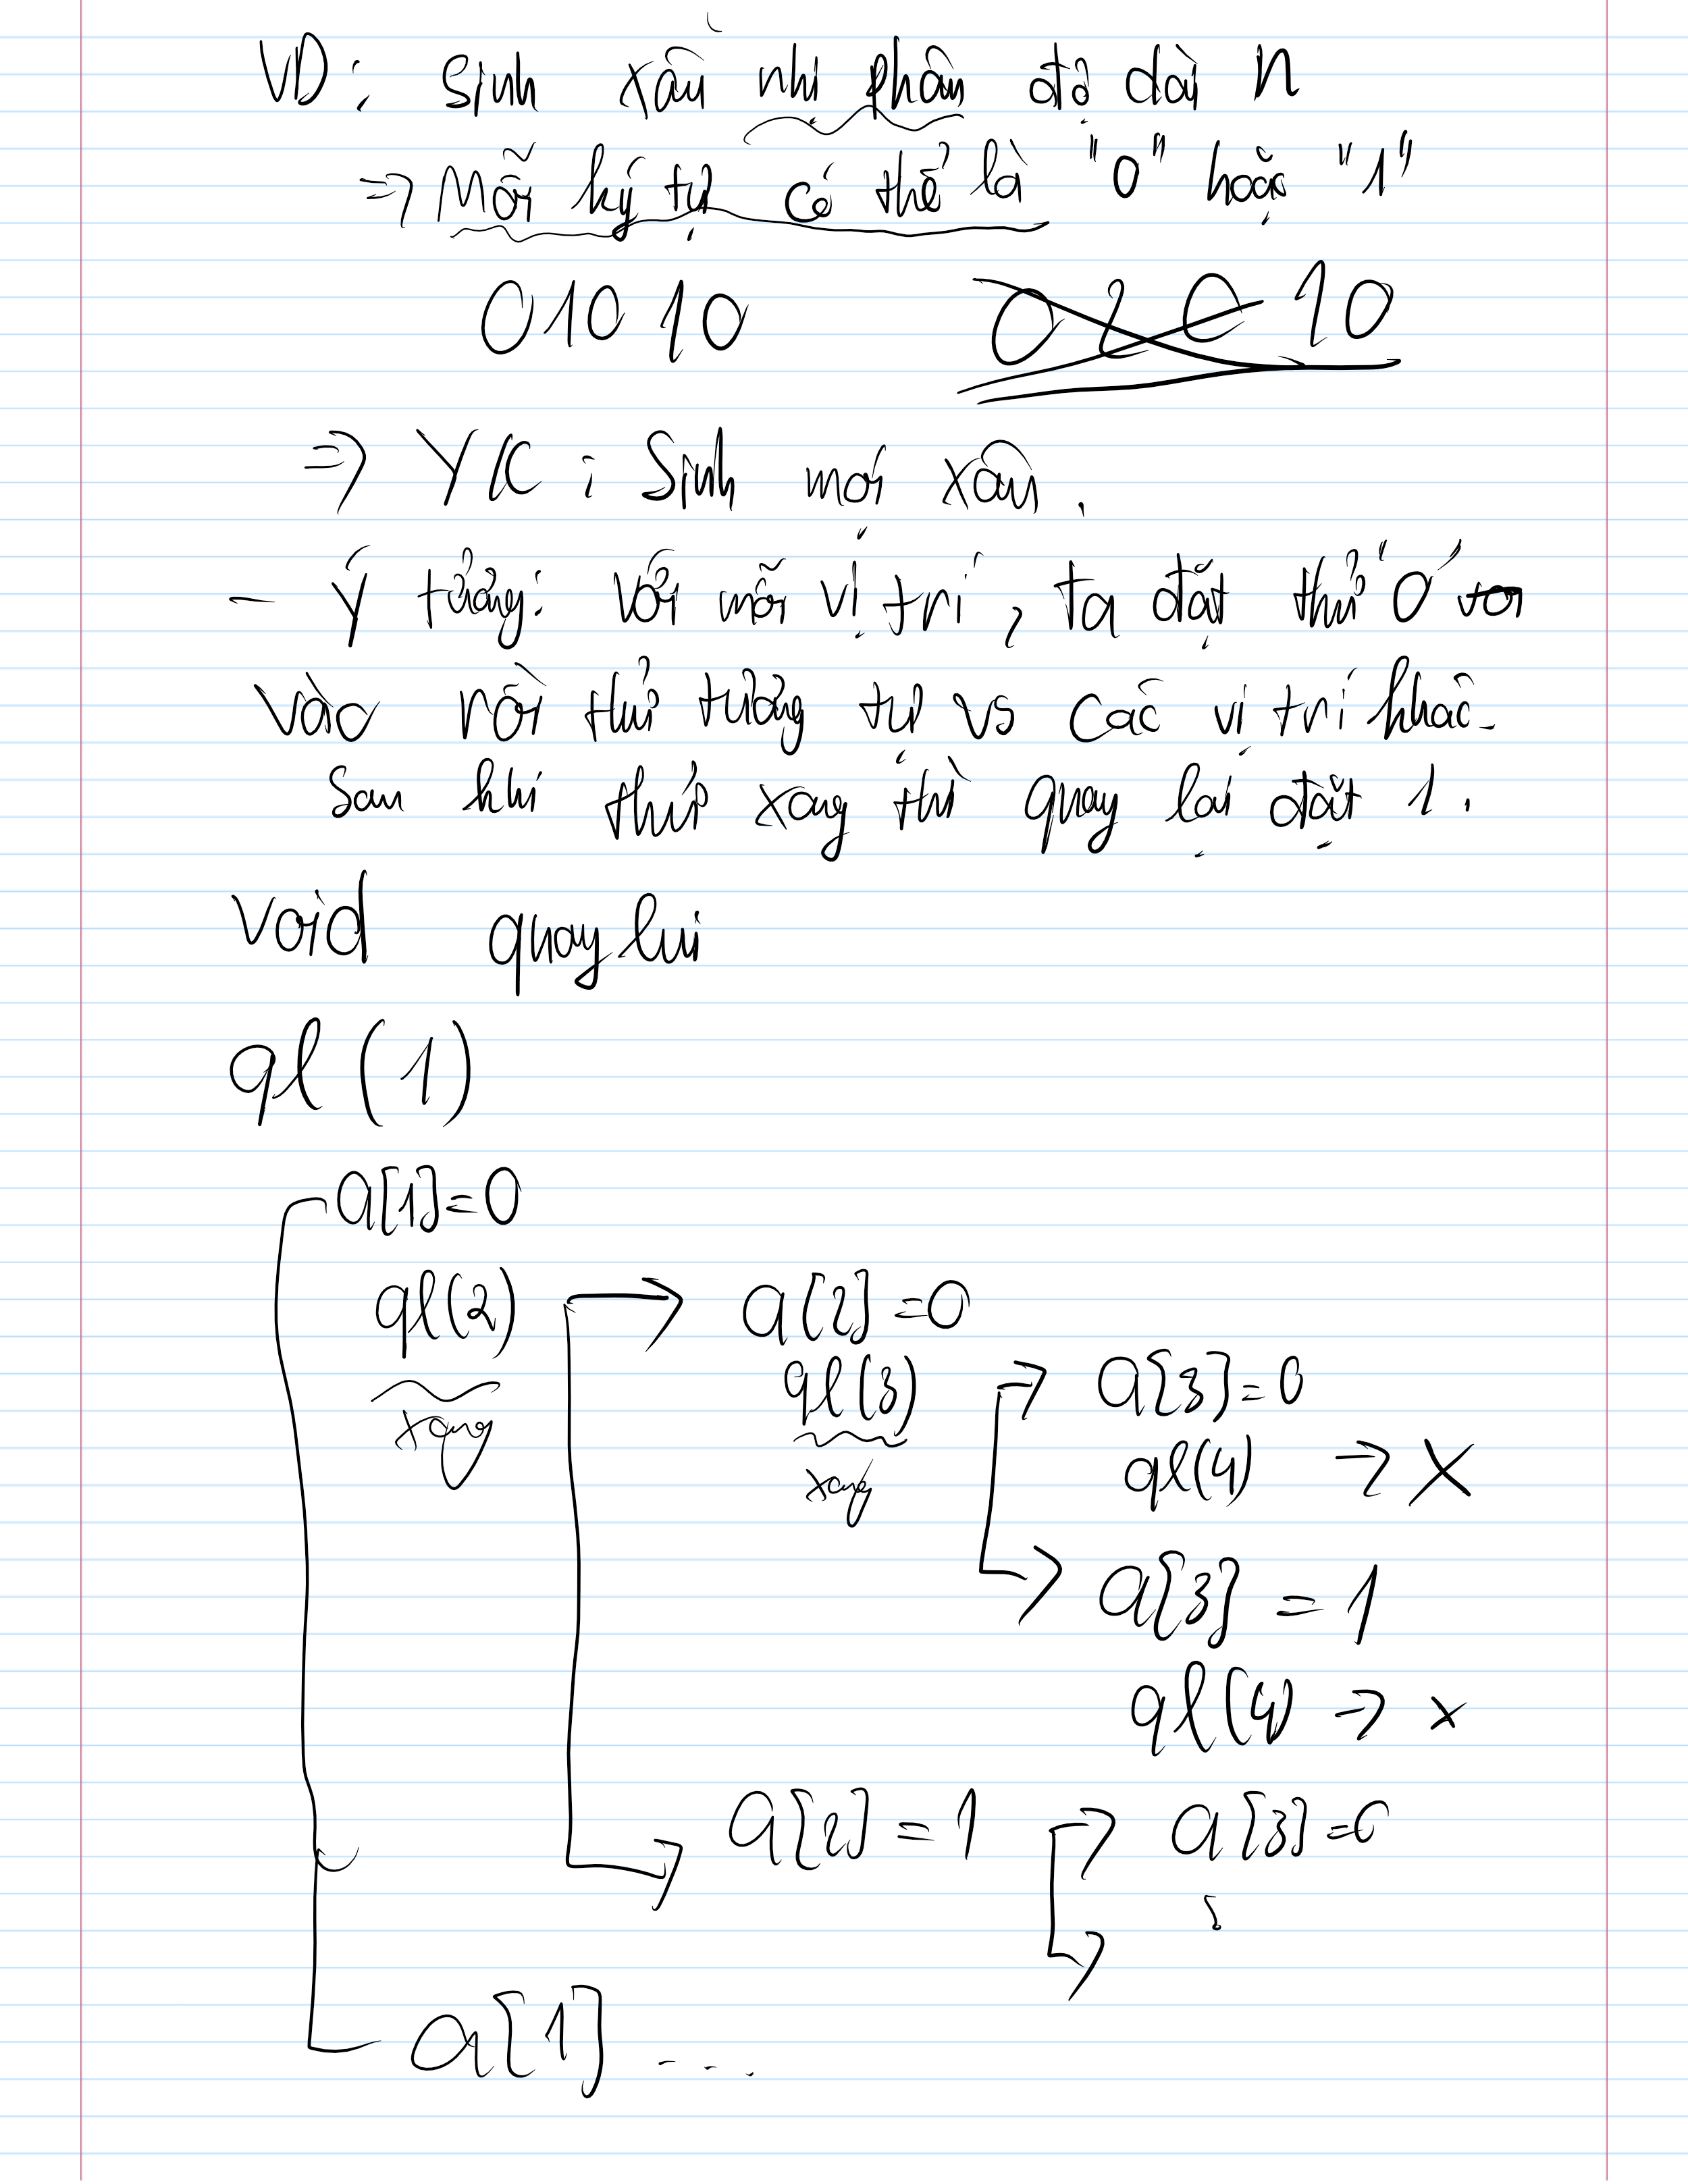 VD: Sinh xâu nhị phân độ dài n
=> Mỗi ký tự có thể là "0" hoặc "1"
01010 02010
=> YC: Sinh mọi xâu.
- Ý tưởng: Với mỗi vị trí, ta đặt thử "0"
vào rồi thử tương tự vs các vị trí khác.
Sau khi thử xong thì quay lại đặt 1.
void quaylui
ql(1)
a[1]=0
ql(2) → a[2]=0
xong
ql(3) → a[3]=0
xong
ql(4) → X
→ a[3] = 1
ql(4) → x
→ a[2] = 1 → a[3]=0
→
a[1] ....